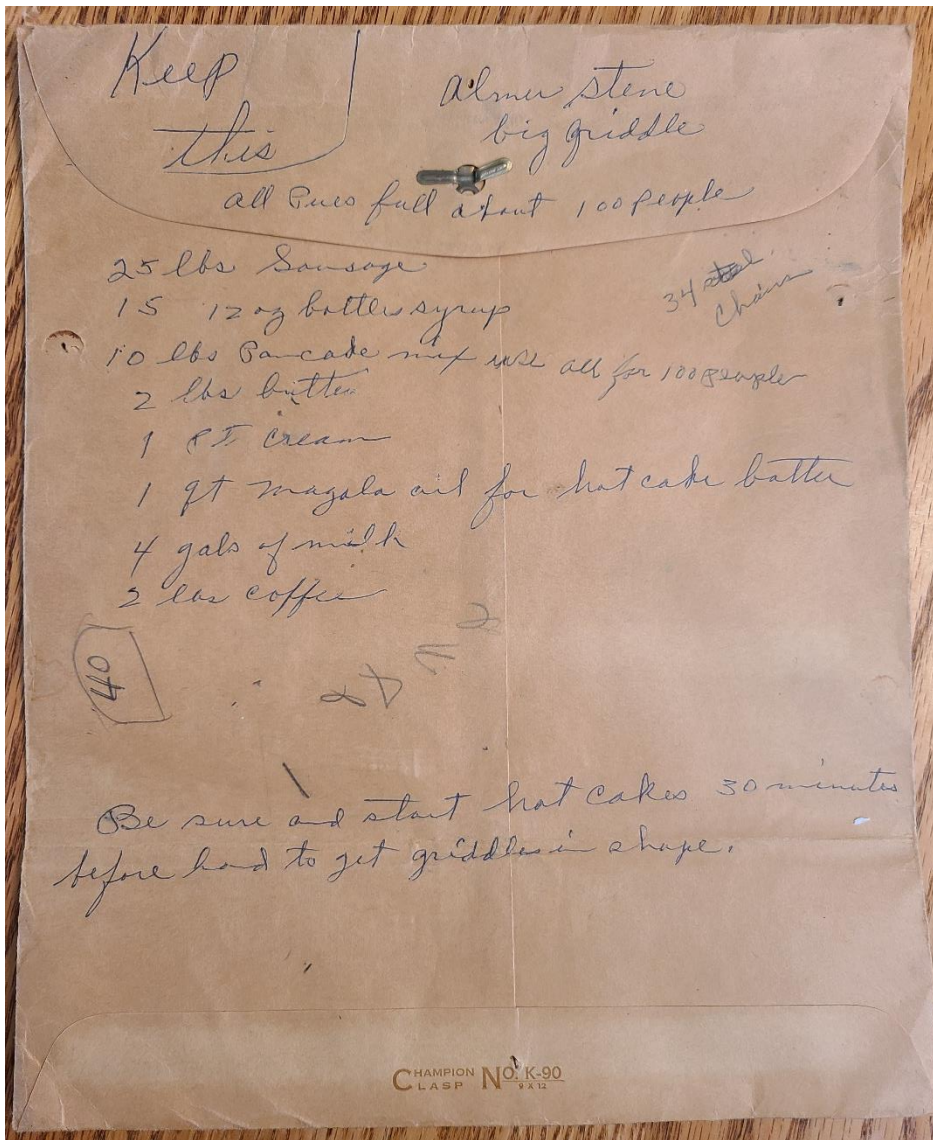 Keep
this
Almer Stene
big griddle
all Pues full about 100 People
25 lbs Sausage
34 steel
Chairs
15 12 oz bottles syrup
10 lbs Pancade mix use all for 100 people
2 lbs butter
1 PT Cream
1 qt magala oil for hot cake batter
4 gals of milk
2 lbs coffee
40
Be sure and start hot cakes 30 minutes
before hand to get griddles in shape.
CHAMPION CLASP NO. K-90
9 X 12